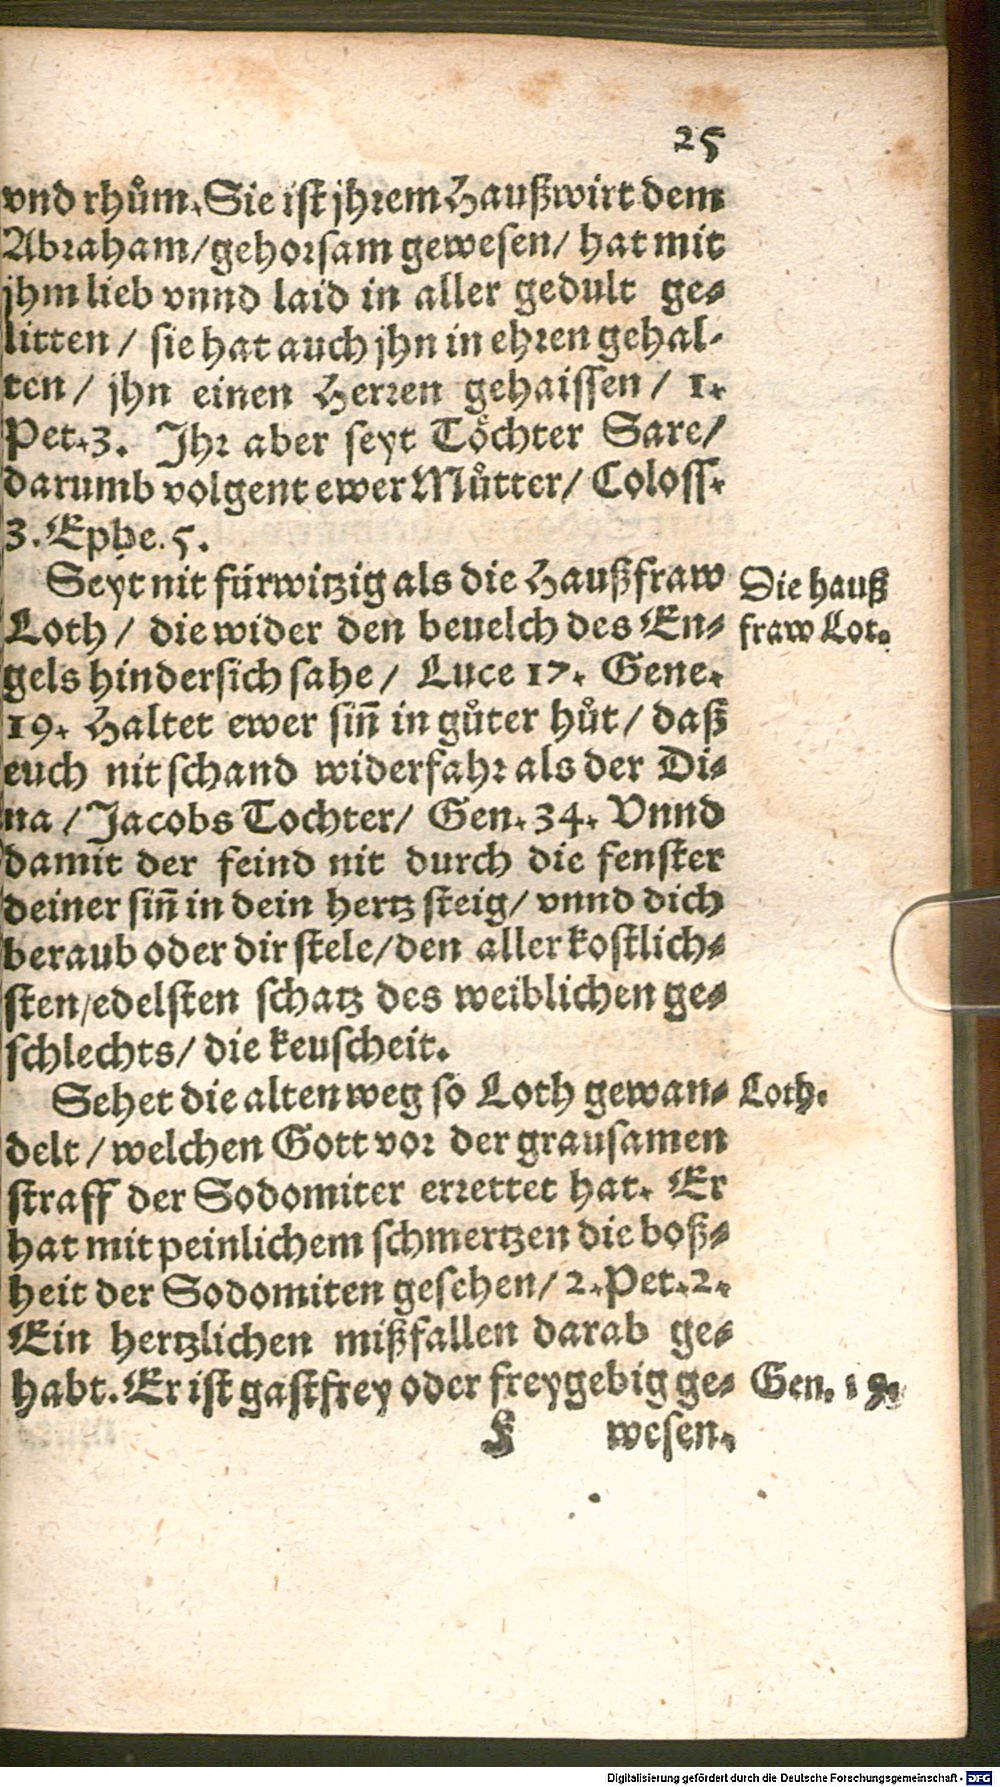 25
vnd rhům. Sie ist jhrem Haußwirt dem
Abraham / gehorsam gewesen / hat mit
jhm lieb vnnd laid in aller gedult ge-
litten / sie hat auch jhn in ehren gehal-
ten / jhn einen Herren gehaissen / 1.
Pet. 3. Jhr aber seyt Töchter Sare /
darumb volgent ewer Můtter / Coloss.
3. Ephe. 5.
Seyt nit fürwitzig als die Haußfraw
Loth / die wider den beuelch des En-
gels hindersich sahe / Luce 17. Gene.
19. Haltet ewer sin̄ in gůter hůt / daß
euch nit schand widerfahr als der Di-
na / Jacobs Tochter / Gen. 34. Vnnd
damit der feind nit durch die fenster
deiner sin̄ in dein hertz steig / vnnd dich
beraub oder dir stele / den aller kostlich-
sten / edelsten schatz des weiblichen ge-
schlechts / die keuscheit.
Sehet die alten weg so Loth gewan-
delt / welchen Gott vor der grausamen
straff der Sodomiter errettet hat. Er
hat mit peinlichem schmertzen die boß-
heit der Sodomiten gesehen / 2. Pet. 2.
Ein hertzlichen mißfallen darab ge-
habt. Er ist gastfrey oder freygebig ge-
wesen.
Die hauß
fraw Lot.
Loth.
Gen. 19.
Digitalisierung gefördert durch die Deutsche Forschungsgemeinschaft - DFG